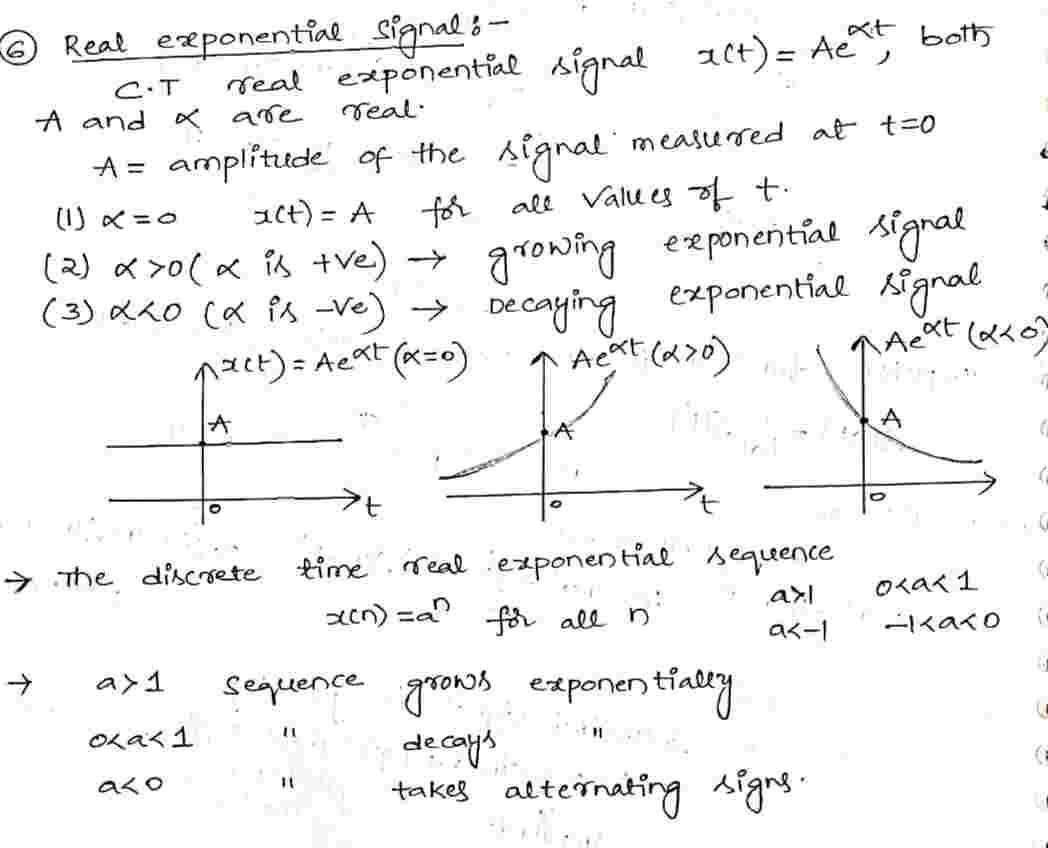 ⑥ Real exponential signal :-
C.T real exponential signal x(t) = Ae^αt, both
A and α are real.
A = amplitude of the signal measured at t=0
(1) α=0 x(t) = A for all values of t.
(2) α>0 (α is +ve) → growing exponential signal
(3) α<0 (α is -ve) → Decaying exponential signal
x(t) = Ae^αt (α=0) Ae^αt (α>0) Ae^αt (α<0)
A A A
0 t 0 t 0
→ The discrete time real exponential sequence
a>1 0<a<1
x(n) = a^n for all n
a<-1 -1<a<0
→ a>1 sequence grows exponentially
0<a<1 " decays "
a<0 " takes alternating signs.